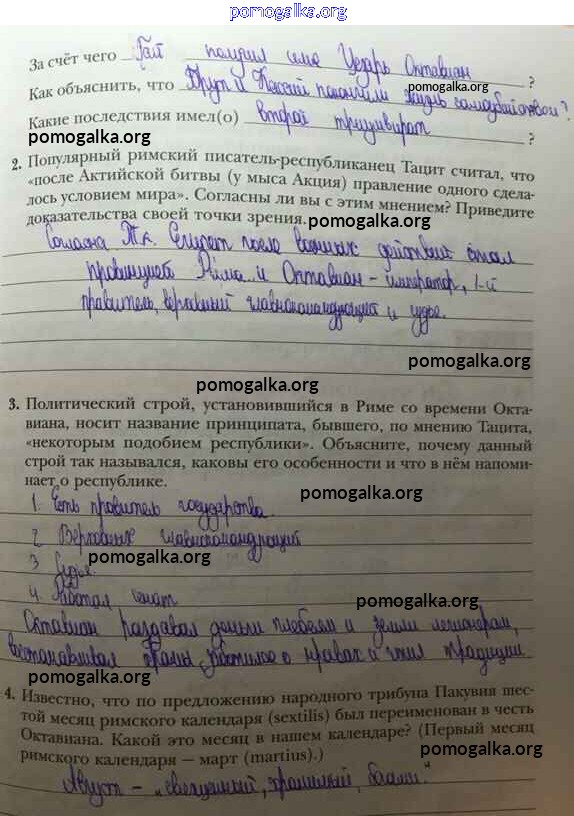 pomogalka.org
За счёт чего Гай получил имя Цезарь Октавиан ?
Как объяснить, что Брут и Кассий покончили жизнь самоубийством?
Какие последствия имел(о) второй триумвират ?
pomogalka.org
2. Популярный римский писатель-республиканец Тацит считал, что
«после Актийской битвы (у мыса Акция) правление одного сдела-
лось условием мира». Согласны ли вы с этим мнением? Приведите
доказательства своей точки зрения. pomogalka.org
Согласна т.к. Египет после военных действий стал
провинцией Рима и Октавиан - император, 1-й
правитель, верховный главнокомандующий и судья.
pomogalka.org
pomogalka.org
3. Политический строй, установившийся в Риме со времени Окта-
виана, носит название принципата, бывшего, по мнению Тацита,
«некоторым подобием республики». Объясните, почему данный
строй так назывался, каковы его особенности и что в нём напоми-
нает о республике.
pomogalka.org
1. Есть правитель государства.
2. Верховный главнокомандующий
3 Судья.
pomogalka.org
4. Работал сенат
pomogalka.org
Октавиан раздавал деньги плебеям и земли легионерам,
восстанавливал храмы, заботился о нравах и чтил традиции
pomogalka.org
4. Известно, что по предложению народного трибуна Пакувия шес-
той месяц римского календаря (sextilis) был переименован в честь
Октавиана. Какой это месяц в нашем календаре? (Первый месяц
римского календаря — март (martius).) pomogalka.org
Август - „священный,